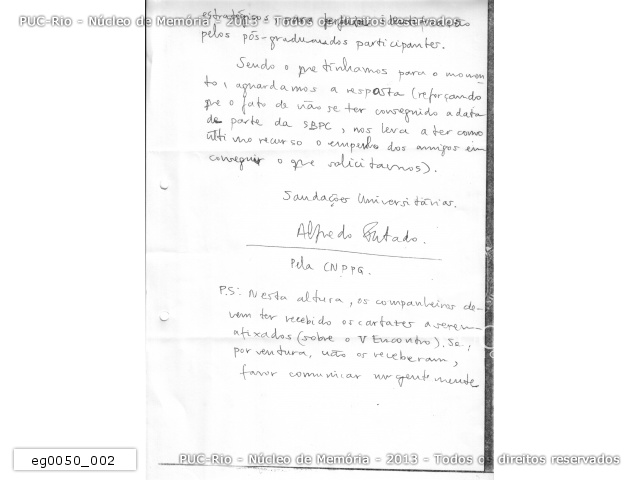 PUC-Rio - Núcleo de Memória - 2013 - Todos os direitos reservados
pelos pós-graduandos participantes.
Sendo o que tínhamos para o momen-
to, aguardamos a resposta (reforçando
que o fato de não se ter conseguido a data
de parte da SBPC, nos leva a ter como
último recurso o empenho dos amigos em
conseguir o que solicitarmos).
Saudações Universitárias.
Alfredo
Pela CNPPG.
P.S: Nesta altura, os companheiros de-
vem ter recebido os cartazes a serem
afixados (sobre o V Encontro). Se,
porventura, não os receberam,
favor comunicar urgentemente
.
eg0050_002
PUC-Rio - Núcleo de Memória - 2013 - Todos os direitos reservados